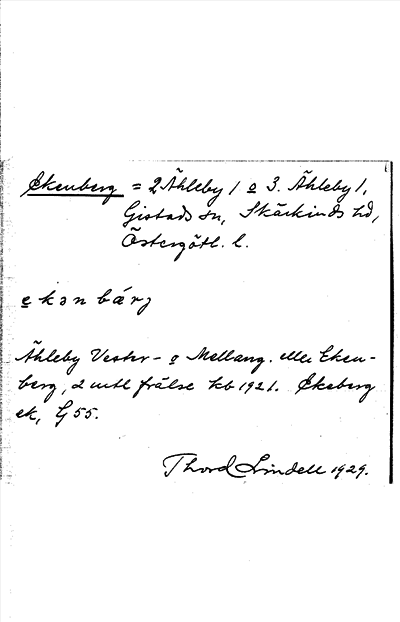 Ekenberg = 2 Åhleby 1 o 3. Åhleby 1,
Gistads sn, Skärkinds hd,
Östergötl. l.
ekən bárj
Åhleby Vester- o Mellang. eller Eken-
berg, 2 mtl frälse kb 1921. Ekeberg
ek, G 55.
Thord Lindell 1929.